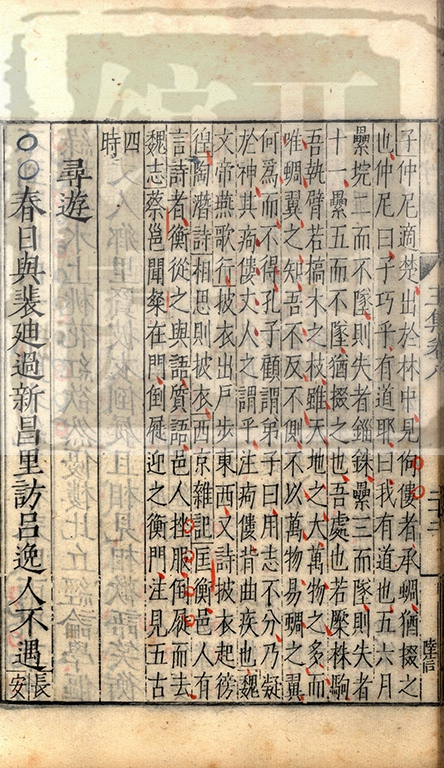 子仲尼適楚出於林中見佝僂者承蜩猶掇之
也仲尼曰子巧乎有道耶曰我有道也五六月
纍垸二而不墜則失者錙銖纍三而墜則失者
十一纍五而不墜猶掇之也吾處也若橜株駒
吾執臂若槁木之枝雖天地之大萬物之多而
唯蜩翼之知吾不反不側不以萬物易蜩之翼
何爲而不得孔子顧謂弟子曰用志不分乃凝
於神其痀僂丈人之謂乎注痀僂背曲疾也魏
文帝燕歌行披衣出戶步東西又詩披衣起徬
徨陶潛詩相思則披衣西京雜記匡衡邑人有
言詩者衡從之與語質語邑人挫服倒屣而去
魏志蔡邕聞粲在門倒屣迎之衡門注見五古
四
時
尋遊
○○春日與裴廸過新昌里訪呂逸人不遇
長
安